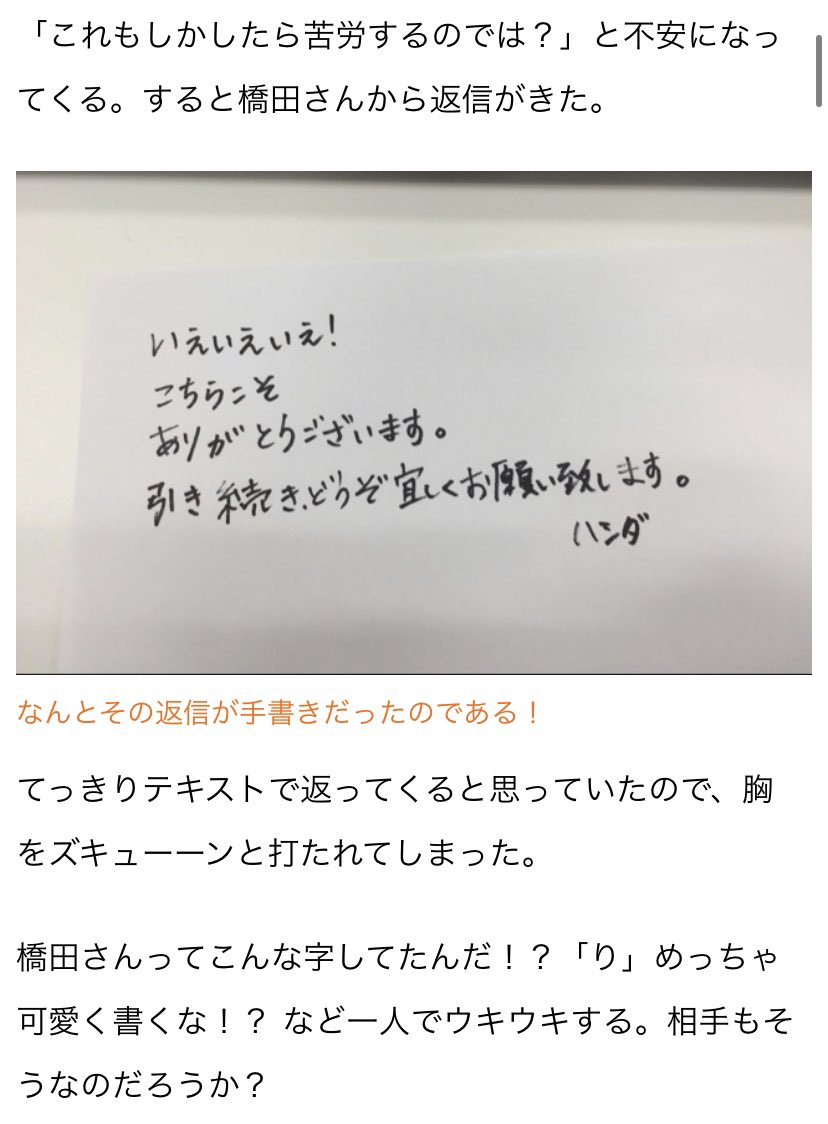 「これもしかしたら苦労するのでは？」と不安になっ
てくる。すると橋田さんから返信がきた。
いえいえいえ！
こちらこそ
ありがとうございます。
引き続き、どうぞ宜しくお願い致します。
ハシダ
なんとその返信が手書きだったのである！
てっきりテキストで返ってくると思っていたので、胸
をズキューーンと打たれてしまった。
橋田さんってこんな字してたんだ！？「り」めっちゃ
可愛く書くな！？ など一人でウキウキする。相手もそ
うなのだろうか？